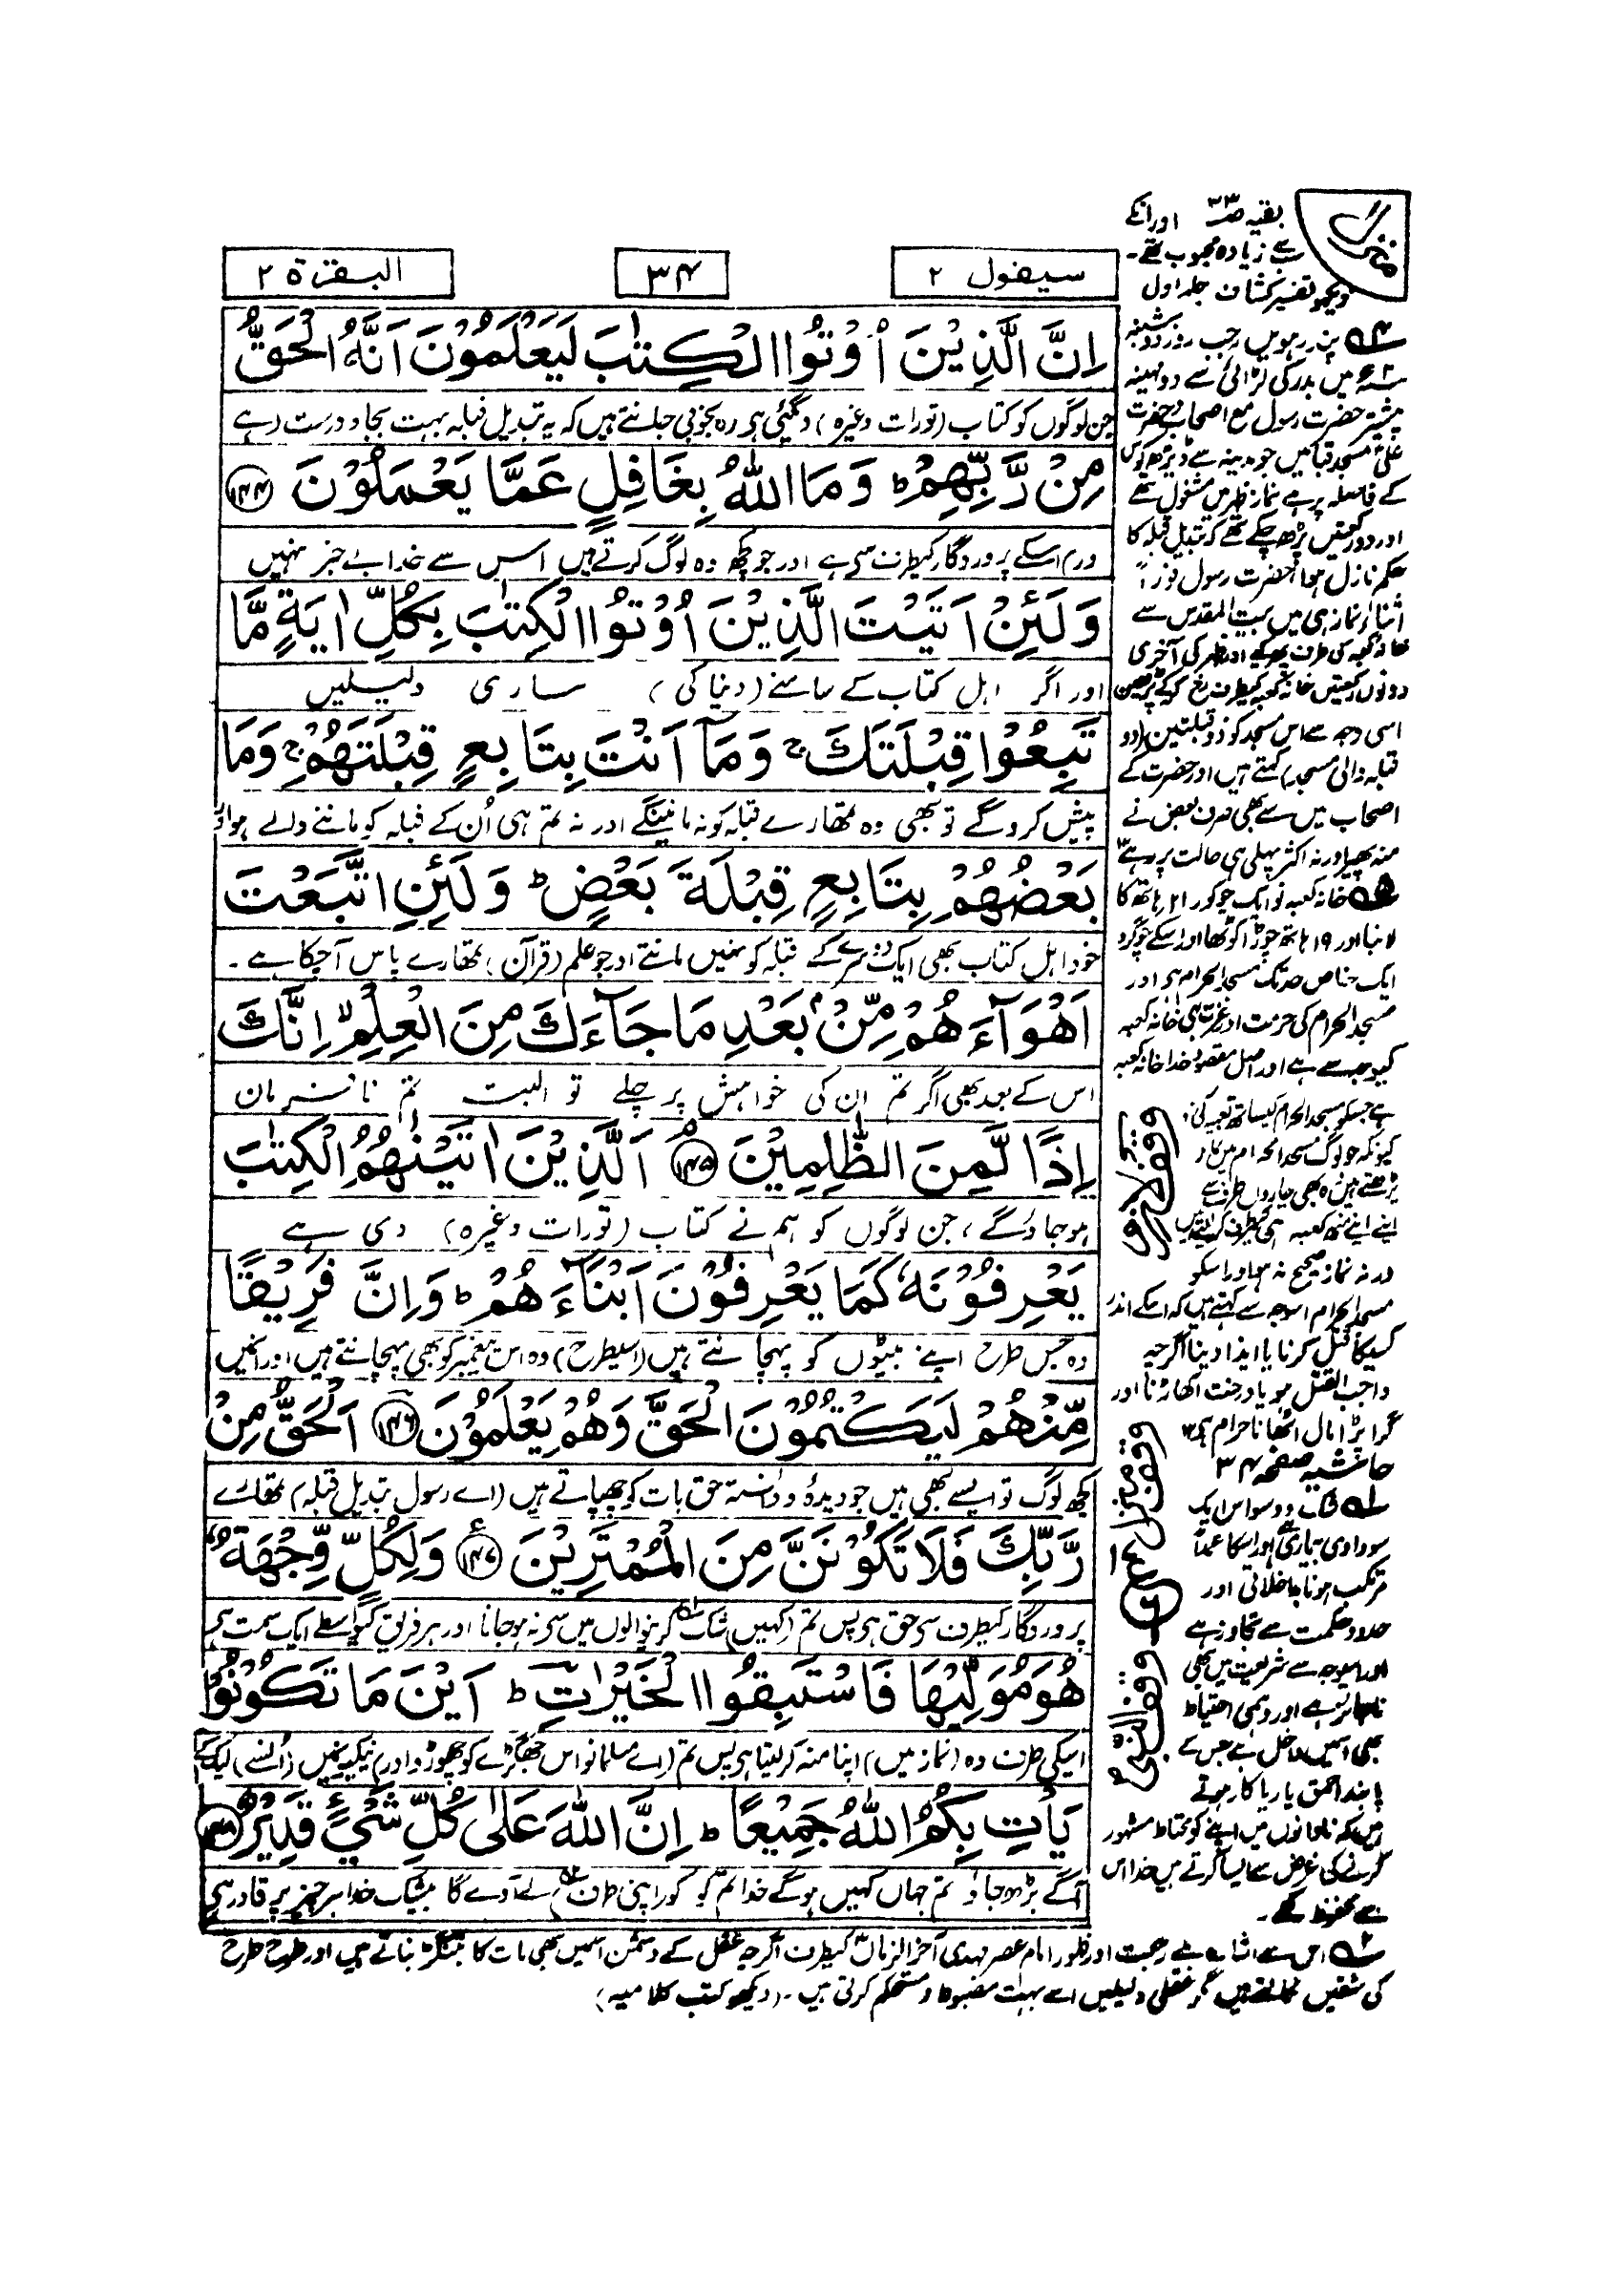 سيقول ٢
٣٤
البقرة ٢
اِنَّ الَّذِيْنَ اُوْتُوا الْكِتٰبَ لَيَعْلَمُوْنَ اَنَّهُ الْحَقُّ
جن لوگوں کو کتاب (تورات وغیرہ) دیگئی ہی وہ بخوبی جانتے ہیں کہ یہ تبدیل قبلہ بہت بجا و درست (ہے
مِنْ رَّبِّهِمْ ؕ وَمَا اللّٰهُ بِغَافِلٍ عَمَّا يَعْمَلُوْنَ ۝۱۴۴
اور) اسکے پروردگار کیطرف سی ہے اور جو کچھ وہ لوگ کرتے ہیں اس سے خدا بے خبر نہیں
وَلَئِنْ اَتَيْتَ الَّذِيْنَ اُوْتُوا الْكِتٰبَ بِكُلِّ اٰيَةٍ مَّا
اور اگر اہل کتاب کے سامنے (دنیا کی) ساری دلیلیں
تَبِعُوْا قِبْلَتَكَ ۚ وَمَآ اَنْتَ بِتَابِعٍ قِبْلَتَهُمْ ۚ وَمَا
پیش کر دوگے تو بھی وہ تمہارے قبلہ کو نہ مانینگے اور نہ تم ہی اُن کے قبلہ کو ماننے والے ہو اور
بَعْضُهُمْ بِتَابِعٍ قِبْلَةَ بَعْضٍ ؕ وَلَئِنِ اتَّبَعْتَ
خود اہل کتاب بھی ایک دوسرے کے قبلہ کو نہیں مانتے اور جو علم (قرآن) تمہارے پاس آچکا ہے ۔
اَهْوَآءَهُمْ مِّنْۢ بَعْدِ مَا جَآءَكَ مِنَ الْعِلْمِ ۙ اِنَّكَ
اس کے بعد بھی اگر تم ان کی خواہش پر چلے تو البتہ تم نافرمان
اِذًا لَّمِنَ الظّٰلِمِيْنَ ۝۱۴۵ اَلَّذِيْنَ اٰتَيْنٰهُمُ الْكِتٰبَ
ہو جاؤگے، جن لوگوں کو ہم نے کتاب (تورات وغیرہ) دی ہے
يَعْرِفُوْنَهٗ كَمَا يَعْرِفُوْنَ اَبْنَآءَهُمْ ؕ وَاِنَّ فَرِيْقًا
وہ جس طرح اپنے بیٹوں کو پہچانتے ہیں (اسیطرح) وہ اس پیغمبر کو بھی پہچانتے ہیں اور انمیں
مِّنْهُمْ لَيَكْتُمُوْنَ الْحَقَّ وَهُمْ يَعْلَمُوْنَ ۝۱۴۶ اَلْحَقُّ مِنْ
کچھ لوگ تو ایسے بھی ہیں جو دیدہ و دانستہ حق بات کو چھپاتے ہیں (اے رسول تبدیل قبلہ) تمھارے
رَّبِّكَ فَلَا تَكُوْنَنَّ مِنَ الْمُمْتَرِيْنَ ۝۱۴۷ وَلِكُلٍّ وِّجْهَةٌ
پروردگار کیطرف سی حق ہی پس تم (کہیں) شک کرنیوالوں میں سی نہ ہو جانا اور ہر فریق کیواسطے ایک سمت ہی
هُوَ مُوَلِّيْهَا فَاسْتَبِقُوا الْخَيْرٰتِ ؕ اَيْنَ مَا تَكُوْنُوْا
اسیکی طرف وہ (نماز میں) اپنا منہ کر لیتا ہی پس تم (اے مسلمانو اس جھگڑے کو چھوڑ دو اور) نیکیونمیں (اُنسے) لپک کے
يَاْتِ بِكُمُ اللّٰهُ جَمِيْعًا ؕ اِنَّ اللّٰهَ عَلٰى كُلِّ شَيْءٍ قَدِيْرٌ ۝۱۴۸
آگے بڑھ جاؤ تم جہاں کہیں ہوگے خدا تم کو اپنی طرف لے آوے گا بیشک خدا ہر چیز پر قادر ہی
بقیہ ص۳۳ اور انکے
سب سے زیادہ محبوب تھے ۔
دیکھو تفسیر کشاف جلد اول
پندرہویں رجب روز دوشنبہ
۲ھ میں بدر کی لڑائی سے دو مہینہ
پیشتر حضرت رسول مع اصحاب و حضرت
علیؑ مسجد قبا میں جو مدینہ سے ڈیڑھ کوس
کے فاصلہ پر ہے نماز ظہر میں مشغول تھے
اور دو رکعتیں پڑھ چکے تھے کہ تبدیل قبلہ کا
حکم نازل ہوا حضرت رسول فوراً
اثناء نماز ہی میں بیت المقدس سے
خانہ کعبہ کی طرف پھر گئے اور ظہر کی آخری
دونوں رکعتیں خانہ کعبہ کیطرف رخ کر کے پڑھیں
اسی وجہ سے اس مسجد کو ذو قبلتین (دو
قبلہ والی مسجد) کہتے ہیں اور حضرت کے
اصحاب میں سے بھی صرف بعض نے
منہ پھیرا ورنہ اکثر پہلی ہی حالت پر رہے
خانہ کعبہ تو ایک چوکور ۲۱ ہاتھ کا
لانبا اور ۱۹ ہاتھ چوڑا کوٹھا اور اسکے گرد
ایک خاص حد تک مسجد الحرام ہی اور
مسجد الحرام کی حرمت اور عزت بھی خانہ کعبہ
کیوجہ سے ہے اور اصل مقصود خدا خانہ کعبہ
ہے جسکو مسجد الحرام کیساتھ تعبیر کی
کیونکہ جو لوگ مسجد الحرام میں نماز
پڑھتے ہیں وہ بھی چاروں طرف سے
اپنے اپنے منہ کعبہ ہی کیطرف کرتے ہیں
ورنہ نماز صحیح نہ ہو اور اسکو
مسجد الحرام اسوجہ سے کہتے ہیں کہ اسکے اندر
کسیکا قتل کرنا یا ایذا دینا اگرچہ
واجب القتل ہو یا درخت اکھاڑنا اور
گرا پڑا مال اٹھانا حرام ہی ۱۲
حاشیہ صفحہ ۳۴
شک و وسواس ایک
سوداوی بیماری ہے اور اسکا عمداً
مرتکب ہونا بداخلاقی اور
حدود حکمت سے تجاوز ہے
اور اسیوجہ سے شریعت میں بھی
ناجائز ہے اور وہمی احتیاط
بھی اسمیں داخل ہے جس کے
پابند احمق یا ریاکار ہوتے
ہیں کہ نادانوں میں اپنے کو محتاط مشہور
کرنے کی غرض سے ایسا کرتے ہیں خدا اس
سے محفوظ رکھے ۔
اس سے اشارہ ہے رجعت اور ظہور امام عصر مہدی آخر الزماںؑ کیطرف اگرچہ عقل کے دشمن اسمیں بھی بات کا بتنگڑ بناتے ہیں اور طرح طرح
کی شقیں نکالتے ہیں مگر عقلی دلیلیں اسے بہت مضبوط و مستحکم کرتی ہیں ۔ (دیکھو کتب کلامیہ)